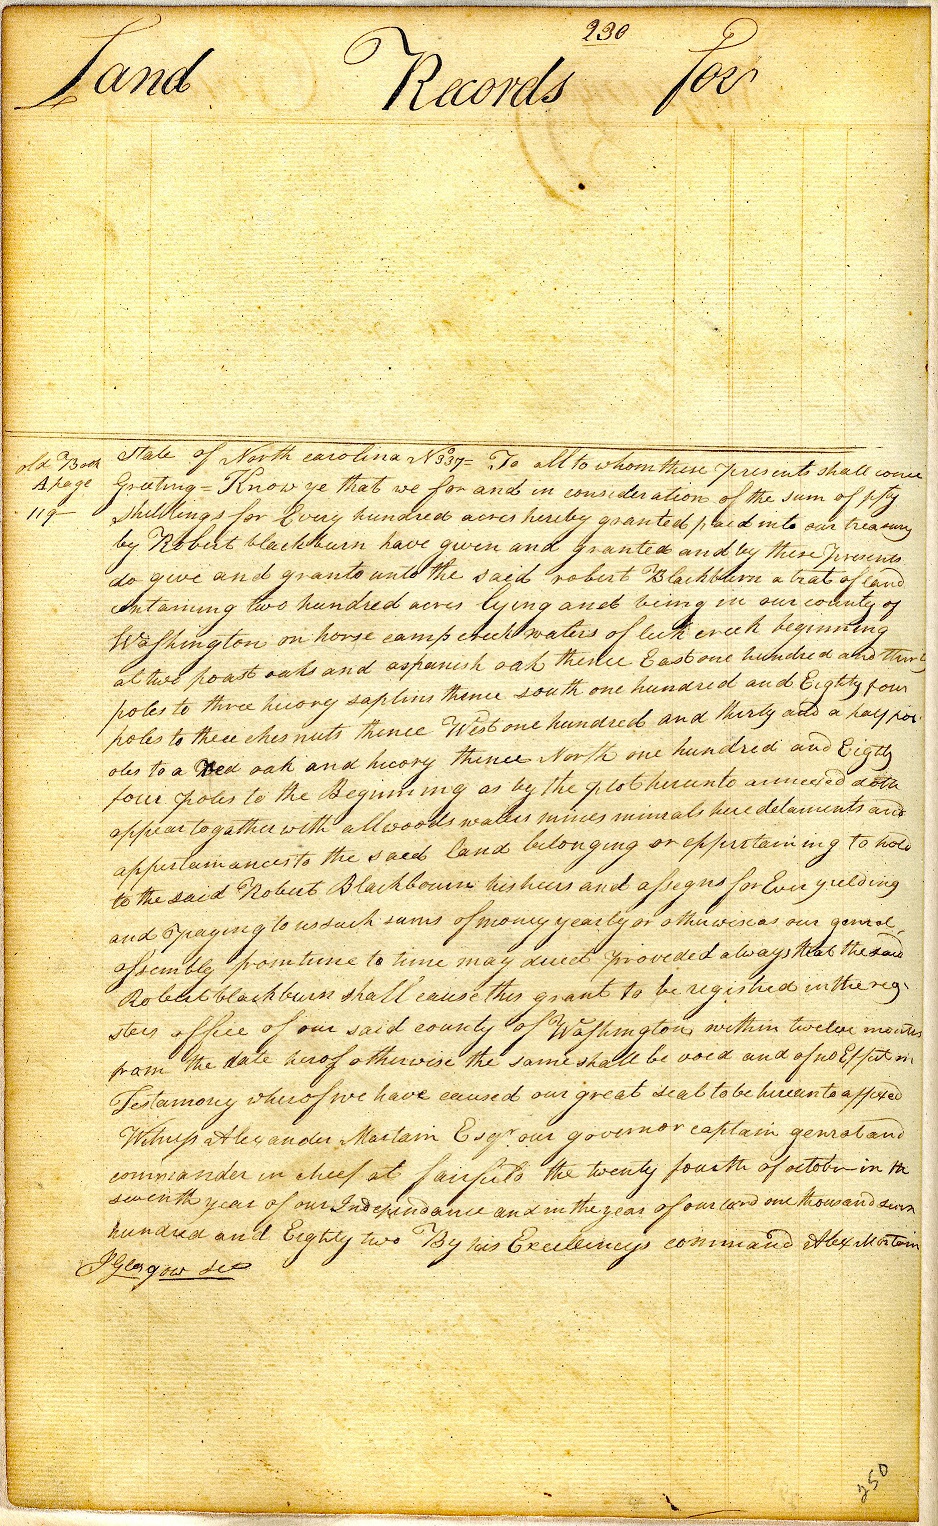 230
Land Records For
old Book
A page
119
State of North carolina No 337= To all to whom these presents shall come
Greeting= Know ye that we for and in consideration of the sum of fifty
shillings for Every hundred acres hereby granted paid into our treasury
by Robert blackburn have given and granted and by these presents
do give and grant unto the said robert Blackburn a trat of land
containing two hundred acres lying and being in our county of
Washington on horse camp creek waters of lick creek beginning
at two poast oaks and a spanish oak thence East one hundred and thirty
poles to three hicory saplins thence south one hundred and Eighty four
poles to thee chesnuts thence West one hundred and thirty and a half
oles to a Red oak and hicory thence North one hundred and Eighty
four poles to the Beginning as by the plot hereunto annexed doth
appear togather with all woods waters mines minirals heredetaments and
appertainances to the said land belonging or oppertaining to hold
to the said Robert Blackbourn his heirs and assegns for Ever yielding
and paying to us such sums of money yearly or otherwise as our genral
assembly from time to time may direct provided always that the said
Robert blackburn shall cause this grant to be registred in the reg-
sters office of our said county of Washington within twelve months
from the date herof otherwise the same shall be void and of no Effect in
Testamony wherof we have caused our great seal to be hereunto affixed
Witness Alexander Martain Esqr our governor captain genral and
commander in cheef at fairfield the twenty fourth of october in the
seventh year of our Independance and in the year of our lord one thousand seven
hundred and Eighty two By his Excellencys command Alex Martain
J Glasgow sec
250